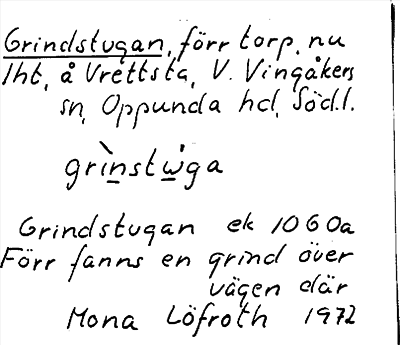 Grindstugan, förr torp, nu
lht, å Vrettsta, V. Vingåkers
sn, Oppunda hd, Södl.
grìnstẁga
Grindstugan ek 10G0a
Förr fanns en grind över
vägen där
Mona Löfroth 1972